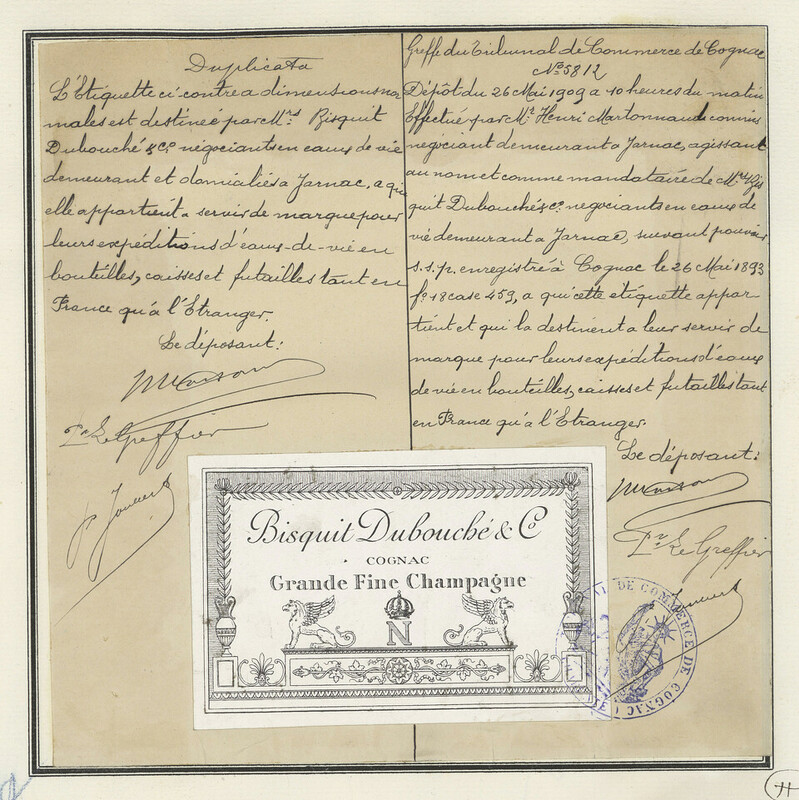 Duplicata
L'Etiquette ci-contre a dimensions nor
males est destinée par Mrs Bisquit
Dubouché & Co négociants en eaux de vie
demeurant et domiciliés a Jarnac, a qui
elle appartient a servir de marque pour
leurs expéditions d'eaux-de-vie en
bouteilles, caisses et futailles tant en
France qu'à l'Etranger.
Le déposant:
Pr Le Greffier
Greffe du Tribunal de Commerce de Cognac
No 5812
Dépôt du 26 Mai 1909 a 10 heures du matin
Effectué par Mr Henri Martonnaud commis
négociant demeurant a Jarnac, agissant
au nom et comme mandataire de Mrs Bis
quit Dubouché & Co négociants en eaux de
vie demeurant a Jarnac, suivant pouvoir
s.s.p. enregistré à Cognac le 26 Mai 1893
fo 18 case 459, a qui cette étiquette appar-
tient et qui la destinent a leur servir de
marque pour leurs expéditions d'eaux
de vie en bouteilles, caisses et futailles tant
en France qu'à l'Etranger.
Le déposant:
Pr Le Greffier
Bisquit Dubouché & Co
COGNAC
Grande Fine Champagne
N
DE COMMERCE DE COGNAC